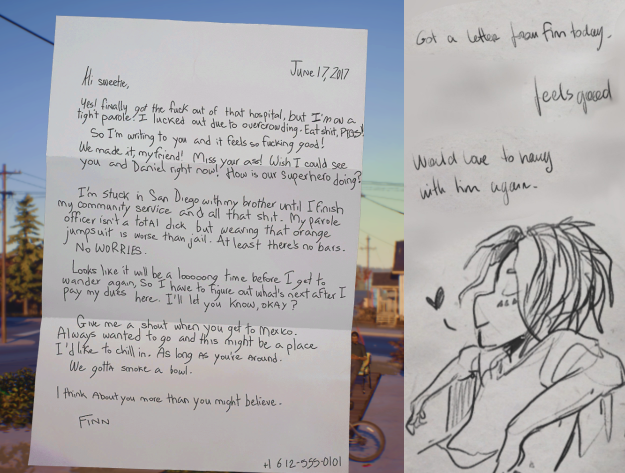 June 17, 2017
Hi sweetie,
Yes! Finally got the fuck out of that hospital, but I'm on a
tight parole! I lucked out due to overcrowding. Eat shit, PIGS!
So I'm writing to you and it feels so fucking good!
We made it, my friend! Miss your ass! Wish I could see
you and Daniel right now! How is our superhero doing?
I'm stuck in San Diego with my brother until I finish
my community service and all that shit. My parole
officer isn't a total dick but wearing that orange
jumpsuit is worse than jail. At least there's no bars.
NO WORRIES.
Looks like it will be a looooong time before I get to
wander again, so I have to figure out what's next after I
pay my dues here. I'll let you know, okay?
Give me a shout when you get to Mexico.
Always wanted to go and this might be a place
I'd like to chill in. As long as you're around.
We gotta smoke a bowl.
I think about you more than you might believe.
FINN
+1 612-555-0101
Got a letter from Finn today.
feels good
Would love to hang
with him again.